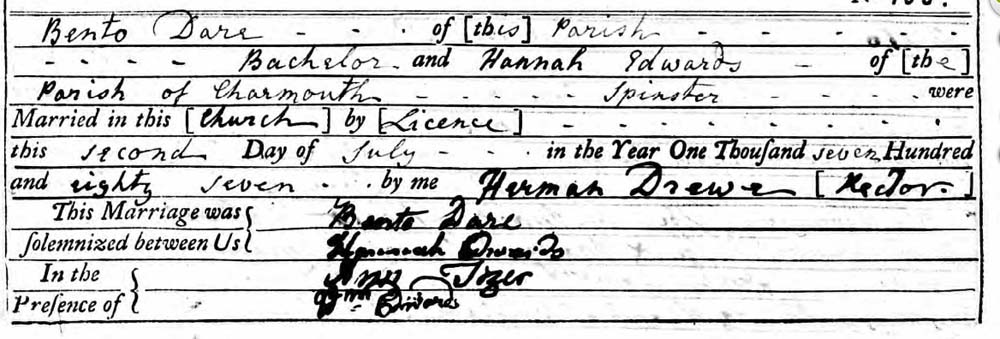 Bento Dare - - - of [this] Parish - - - - - -
- - - - Bachelor - and Hannah Edwards - of [the]
Parish of Charmouth - - - - - Spinster - - - - were
Married in this [Church] by [Licence] - - - - - - -
this second Day of July - - - in the Year One Thouſand seven Hundred
and eighty seven - - by me Herman Drewe [Rector.]
This Marriage was { Bento Dare
ſolemnized between Us { Hannah Edwards
In the { Ann
Preſence of { Edwards